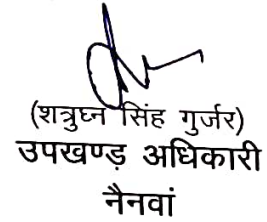 (शत्रुघ्न सिंह गुर्जर)
उपखण्ड़ अधिकारी
नैनवां